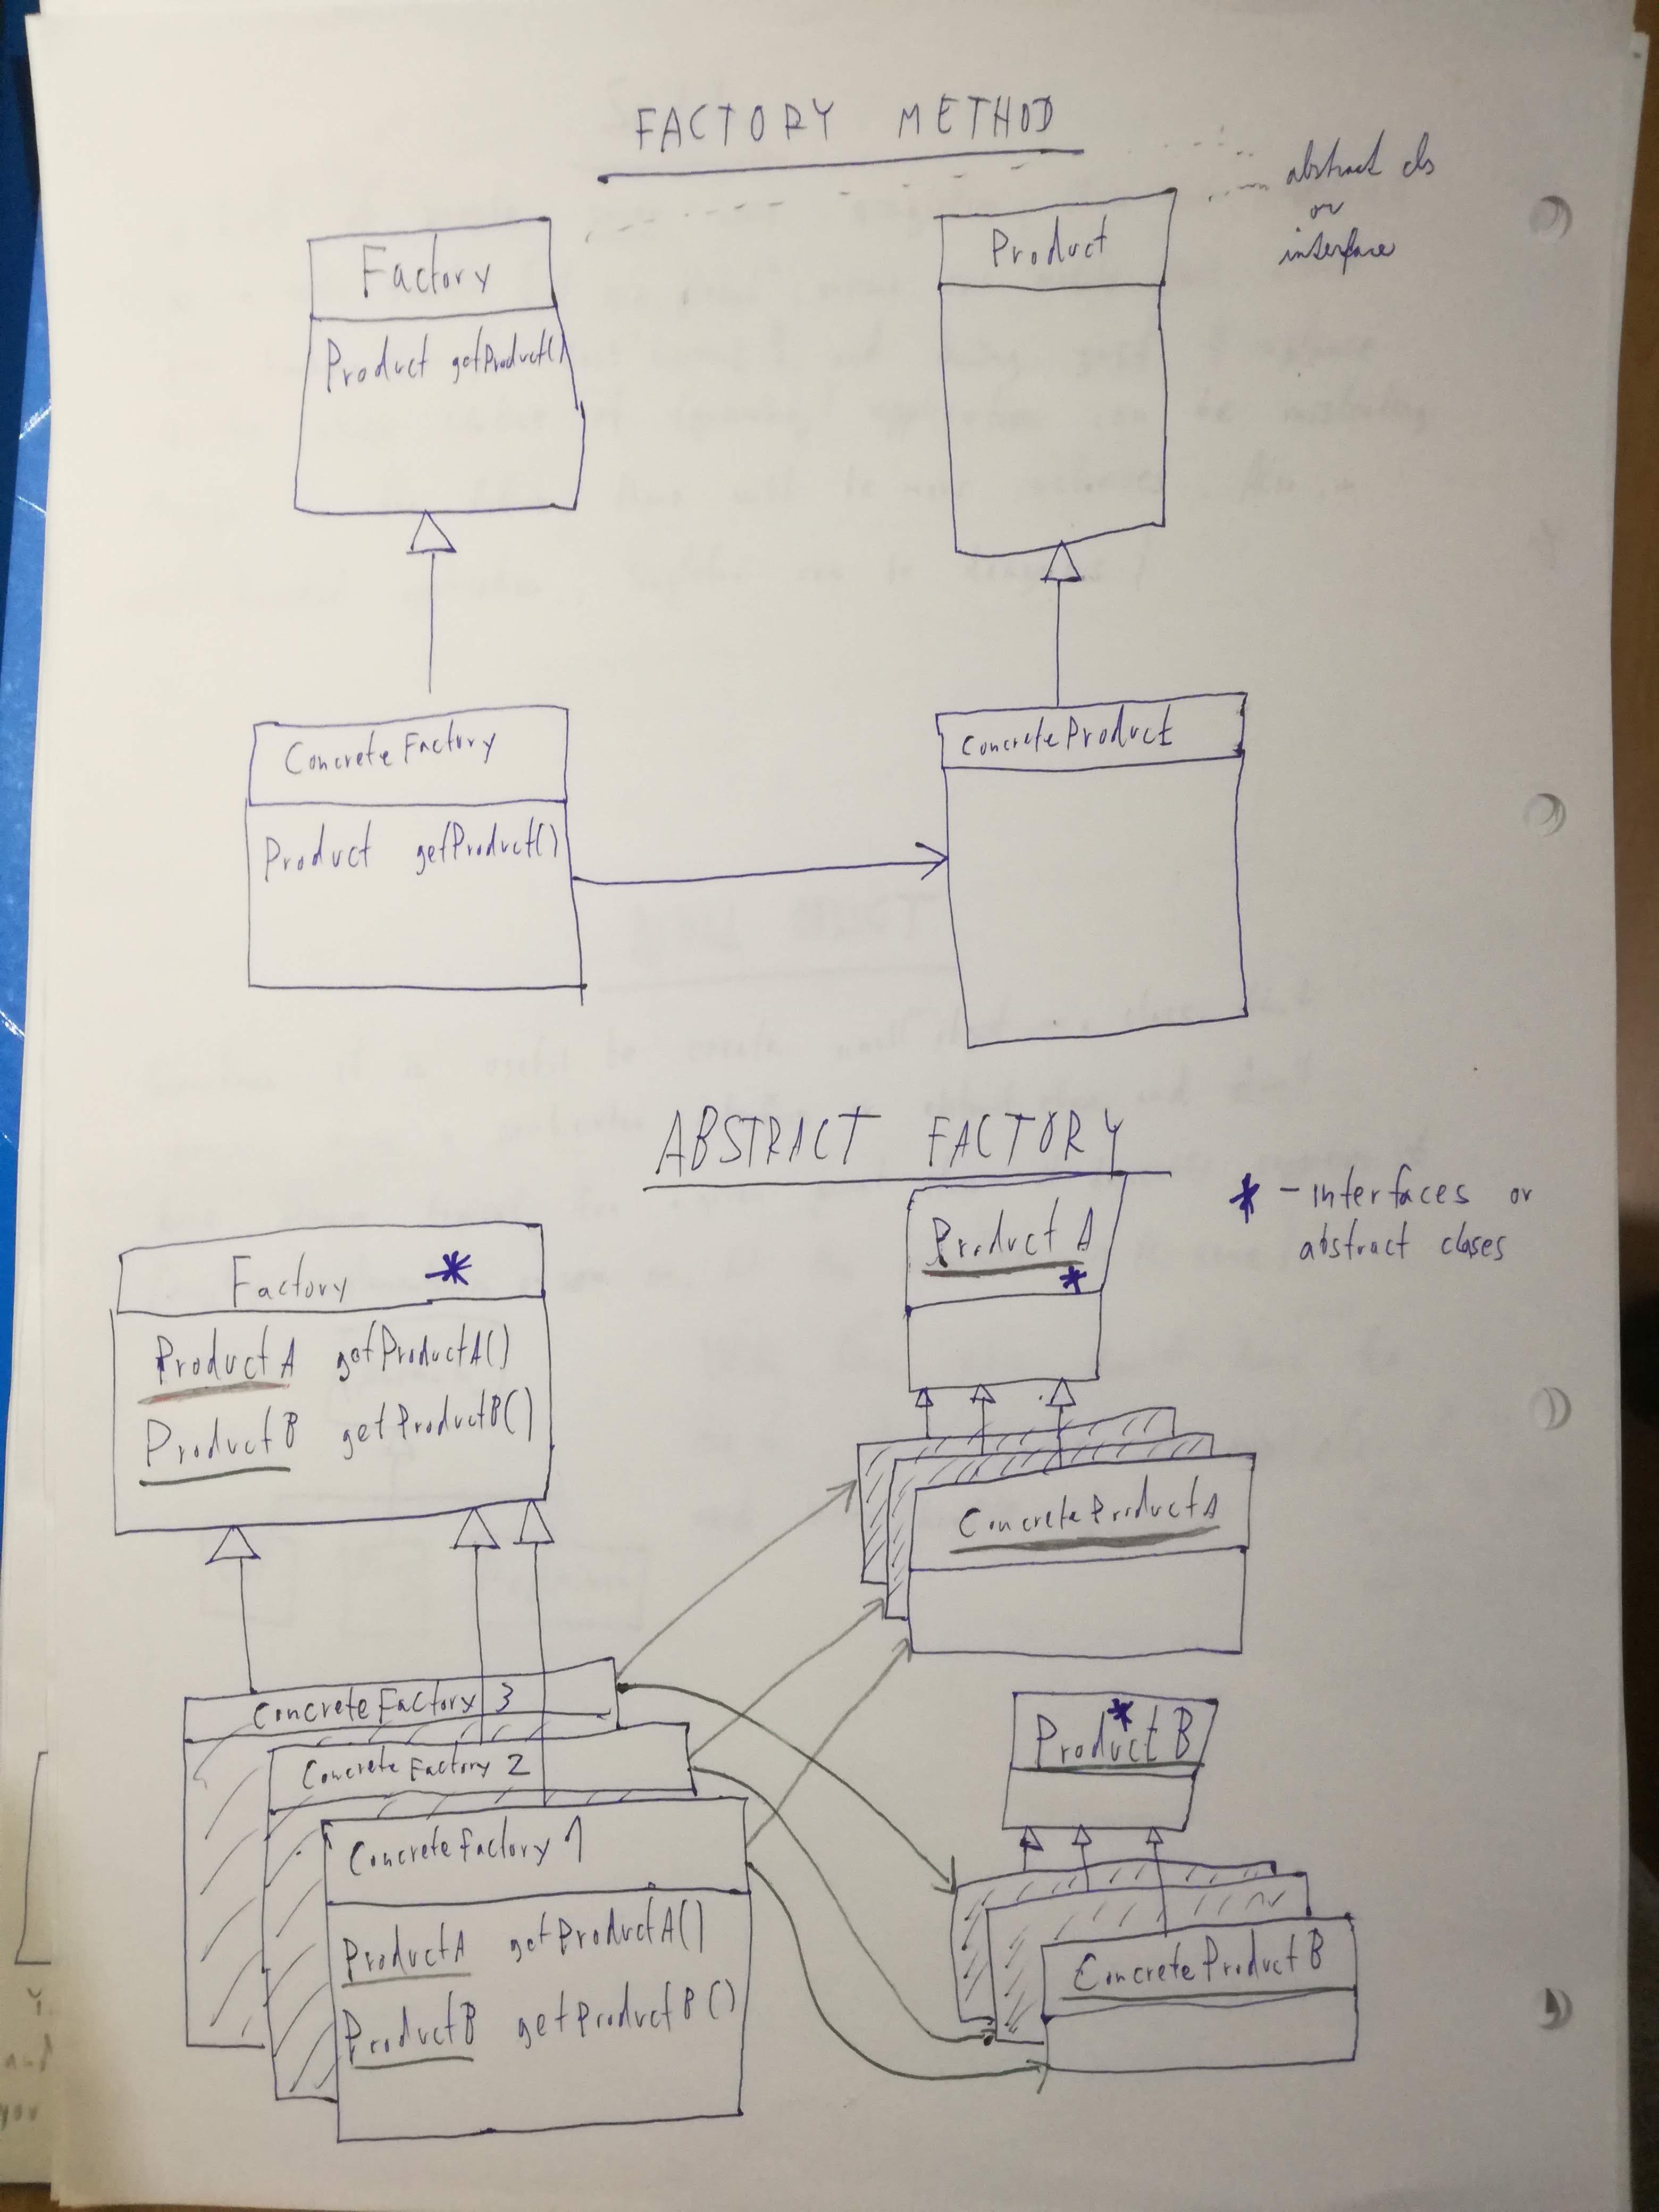 FACTORY METHOD
abstract cls
or
interface
Factory
Product getProduct()
Product
ConcreteFactory
Product getProduct()
ConcreteProduct
ABSTRACT FACTORY
* - interfaces or
abstract clases
Factory *
ProductA getProductA()
ProductB getProductB()
Product A
*
ConcreteProductA
ConcreteFactory 3
ConcreteFactory 2
ConcreteFactory 1
ProductA getProductA()
ProductB getProductB()
*
Product B
ConcreteProductB